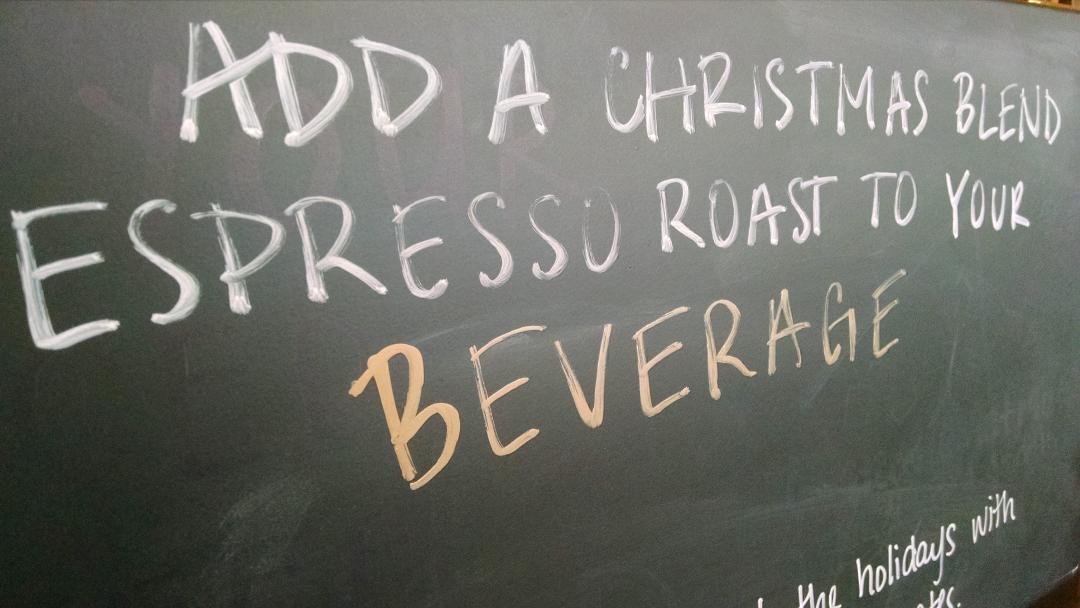 ADD A CHRISTMAS BLEND
ESPRESSO ROAST TO YOUR
BEVERAGE
the holidays with